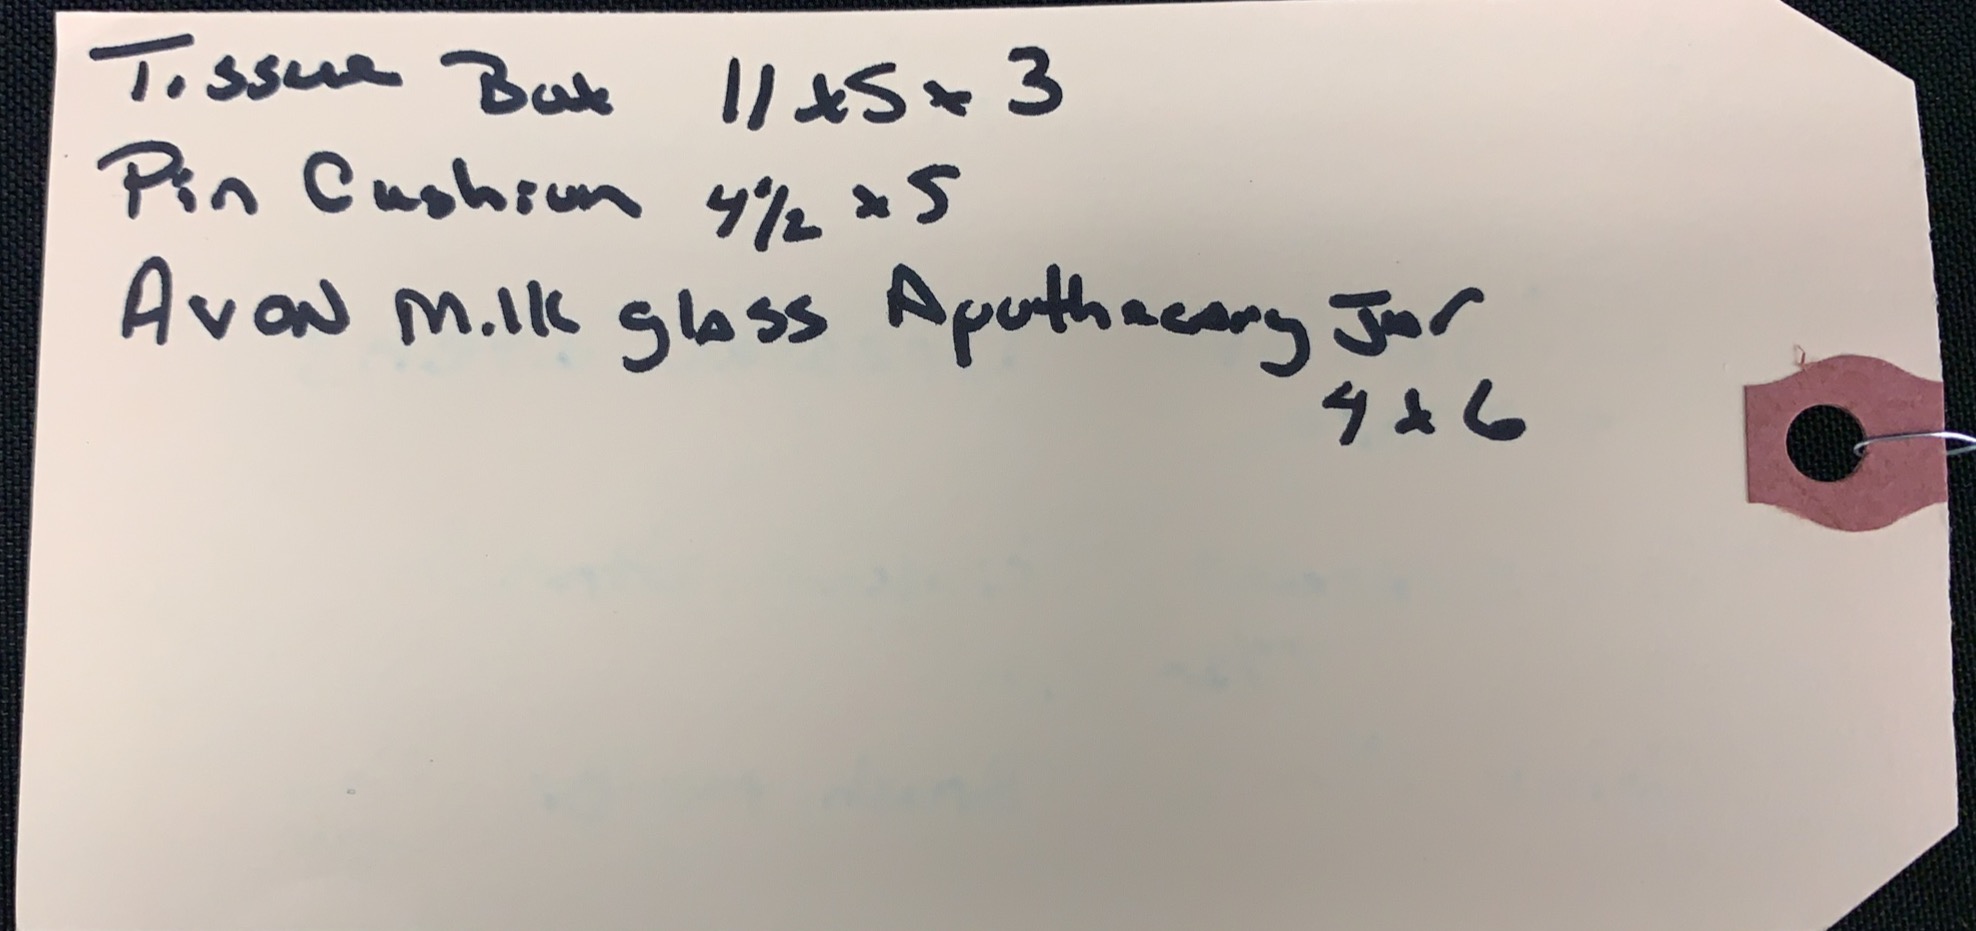 Tissue Box 11x5x3
Pin Cushion 4½ x 5
Avon Milk glass Apothecary Jar
4 x 6